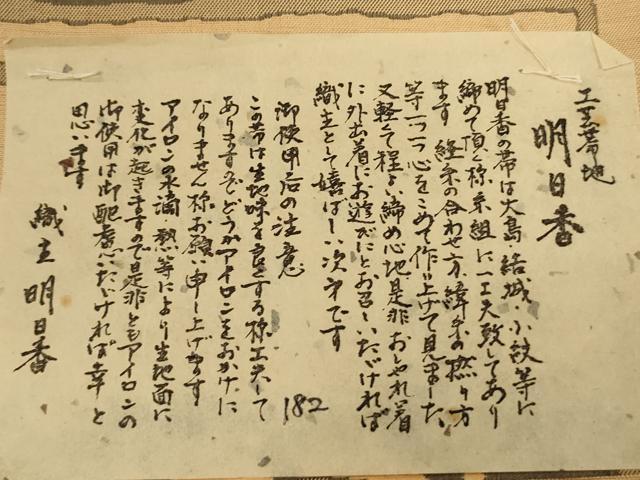 工芸帯地
明日香
明日香の帯は大島、結城、小紋等に
締めて頂く様糸組に一工夫致してあり
ます 経糸の合わせ方、緯糸の撚り方
等一つ一つ心をこめて作り上げて見ました、
又軽くて程よい締め心地是非おしゃれ着
に外出着にお遊びにとお召しいただければ
織主として嬉ばしい次第です
御使用后の注意
この帯は生地味を良とする様工夫して
ありますのでどうかアイロンをおかけに
なりません様お願い申し上げます
アイロンの水滴 熱等により生地面に
変化が起きますので是非ともアイロンの
御使用は御配慮いただければ幸と
思います
織主 明日香
182